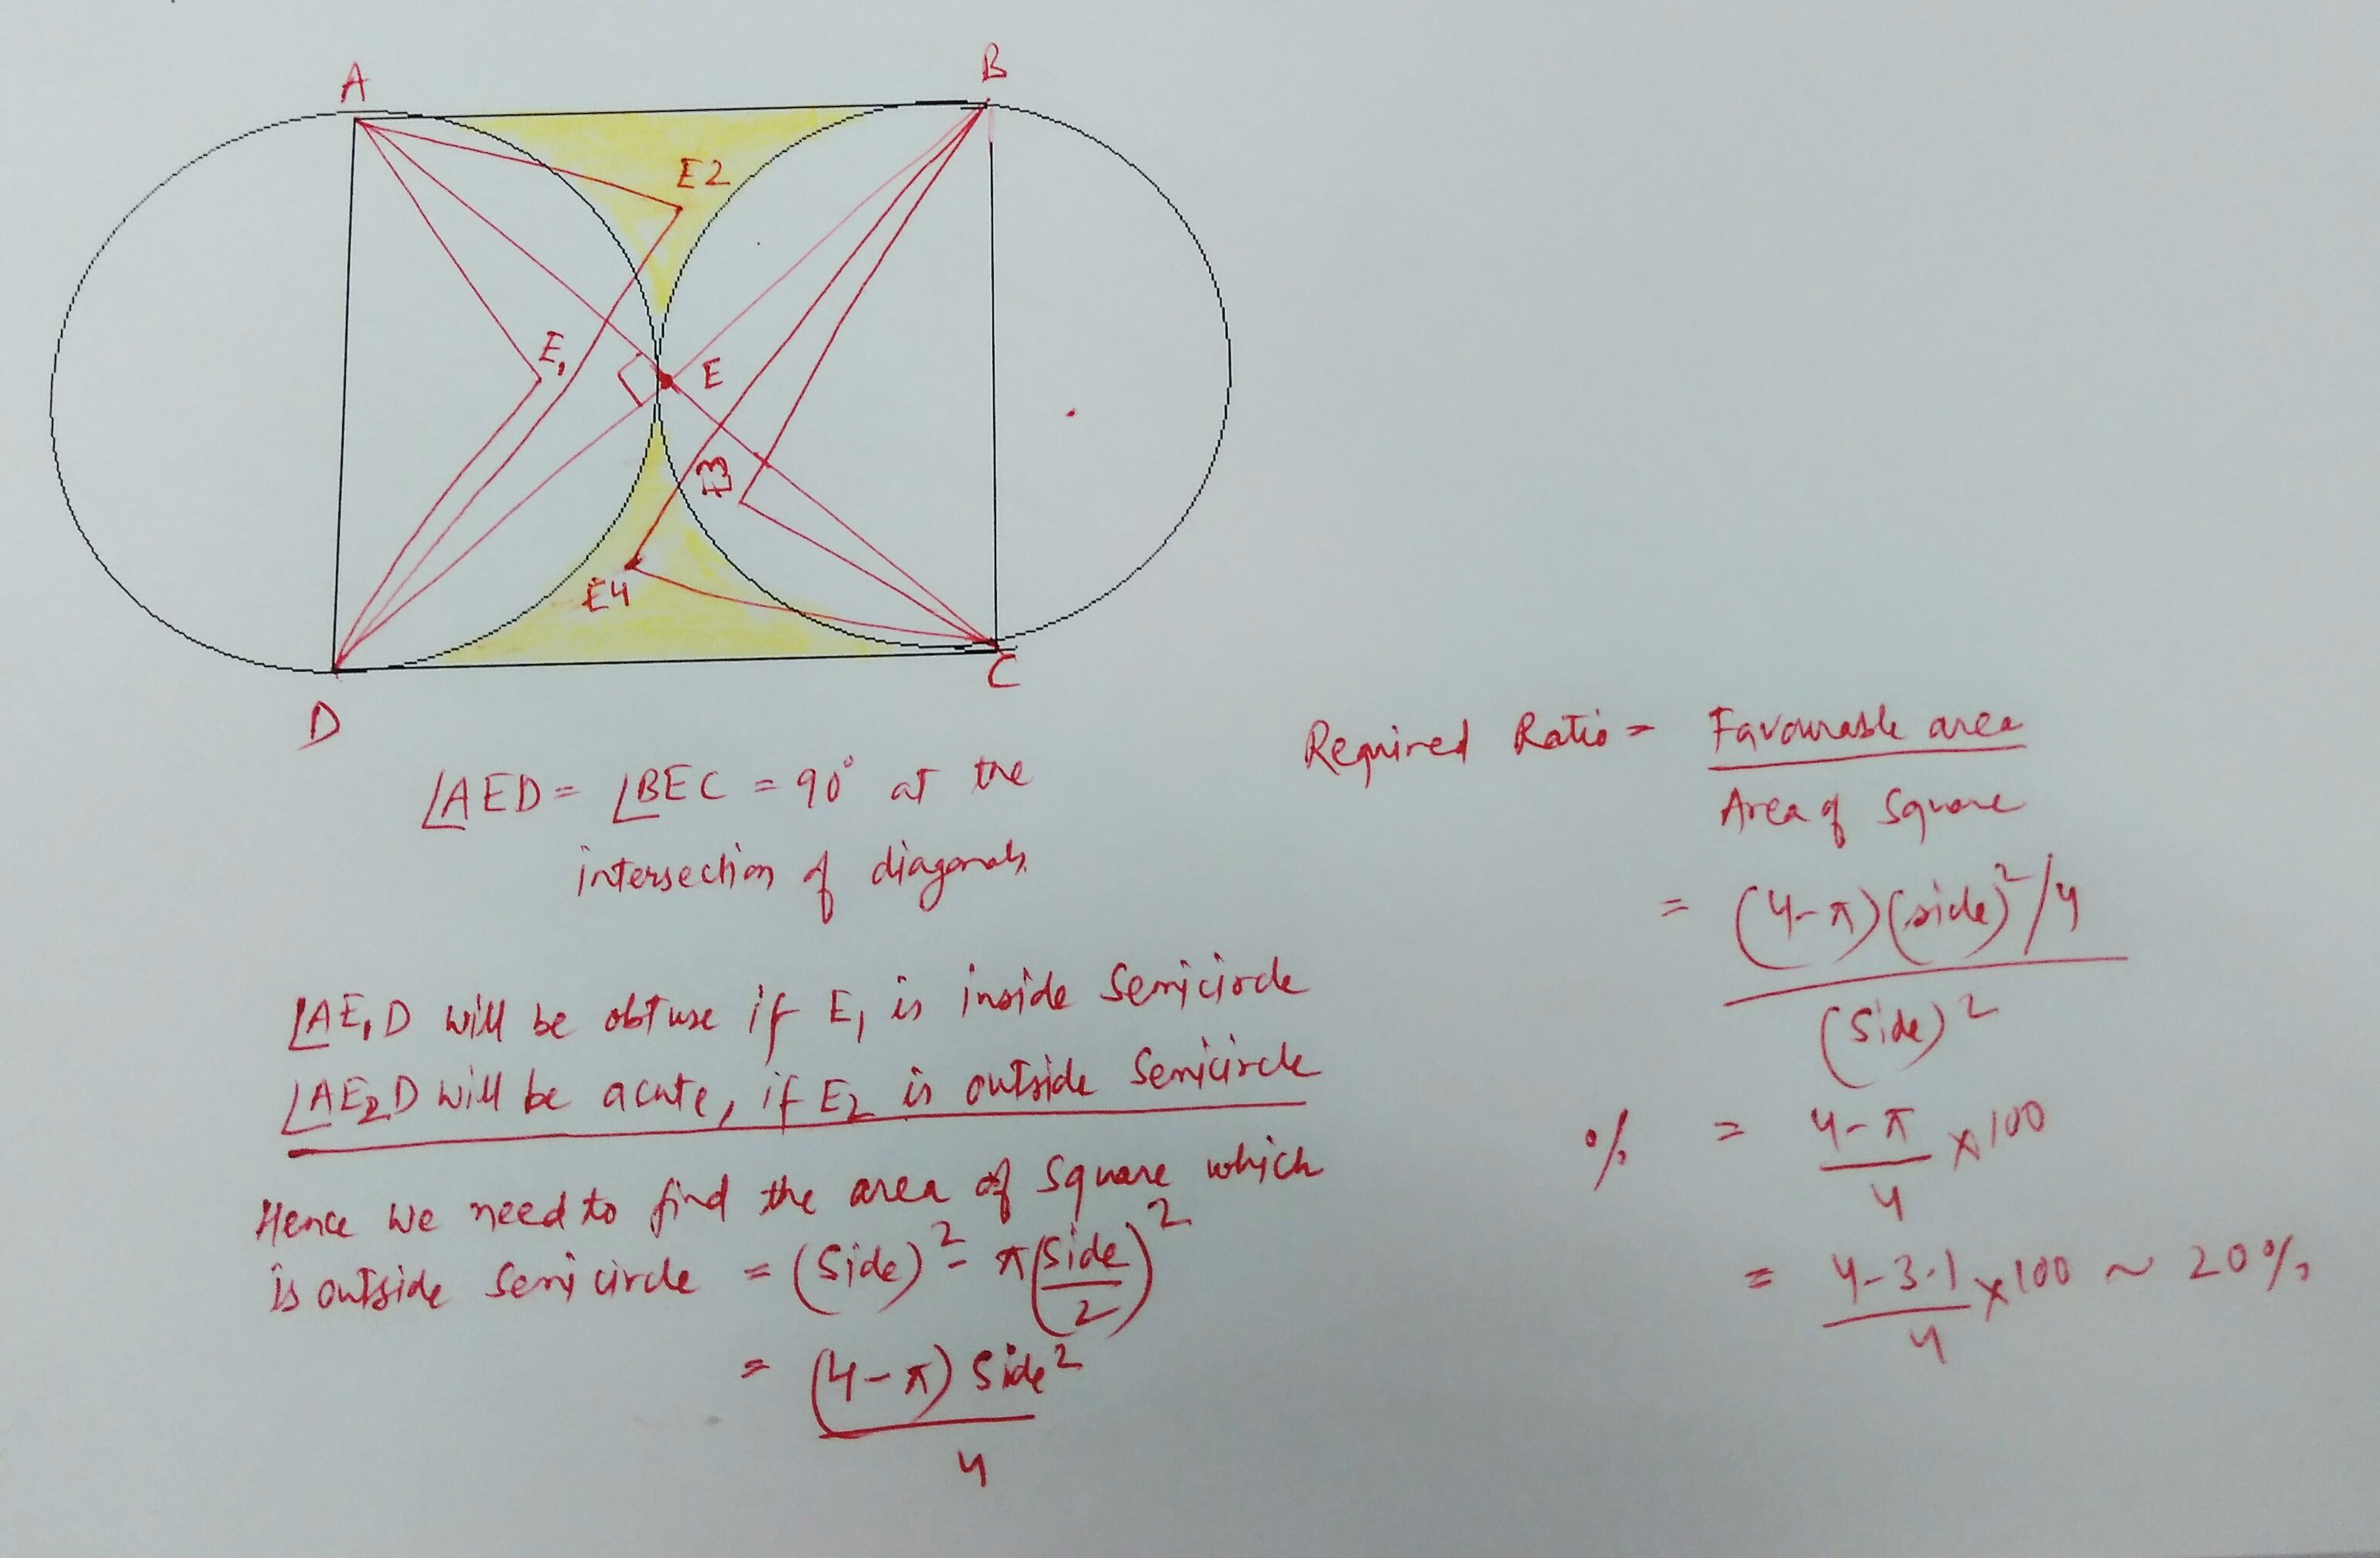 A
B
E2
E₁
E
E3
E4
D
C
∠AED = ∠BEC = 90° at the
intersection of diagonals.
∠AE₁D will be obtuse if E₁ is inside semicircle
∠AE₂D will be acute, if E₂ is outside semicircle
Hence we need to find the area of square which
is outside semicircle = (Side)² - π(Side/2)²
= (4-π) Side²
4
Required Ratio = Favourable area
Area of Square
= (4-π)(side)²/4
(Side)²
% = 4-π/4 × 100
= 4-3.1/4 × 100 ~ 20%